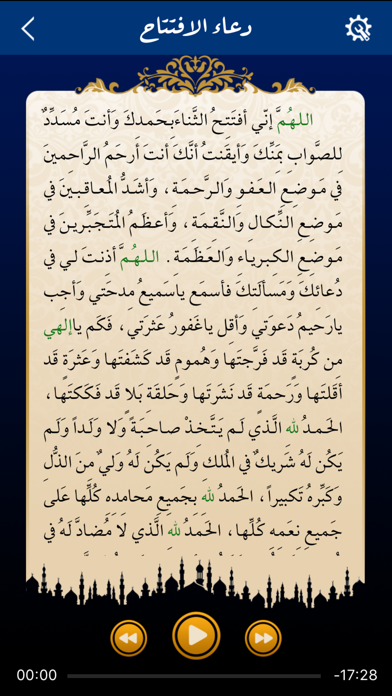 دعاء الافتتاح
اللهُمَّ إنّي أفتَتحُ الثَّناءَبحَمدكَ وَأنتَ مُسَدِّدٌ
للصَّواب بِمَنِّكَ وَأيقَنتُ أنَّكَ أنتَ أرحَمُ الرَّاحِمينَ
في مَوضِعِ العَفو والرَّحمَة ، وَأشَدُّ المُعاقِبينَ في
مَوضعِ النَّكال والنَّقمَة ، وَأعظَمُ المُتَجَبِّرينَ في
مَوضعِ الكبرياء وَالعَظَمَة . اللهُمَّ أذنتَ لي في
دُعائكَ وَمَسألَتكَ فأسمَع ياسَميعُ مِدحَتي وَأجِب
يارَحيمُ دَعوَتي وَأقِل ياغَفورُ عَثرَتي ، فَكَم ياإلهي
من كُربَةٍ قَد فَرَّجتَها وَهُمومٍ قَد كَشَفتَها وَعَثرَة قَد
أقَلتَها وَرَحمَة قَد نَشَرتَها وَحَلقَة بَلا قَد فَكَكتَها ،
الحَمدُ لله الَّذي لَم يَتَّخذ صاحبَةً وَلا وَلَداً وَلَم
يَكُن لَهُ شَريكٌ في المُلك وَلَم يَكُن لَهُ وَليٌ منَ الذُّلِ
وَكَبِّرهُ تَكبيراً ، الحَمدُ لله بجَميعِ مَحامده كُلِّها عَلى
جَميعِ نعَمِه كُلِّها، الحَمدُ لله الَّذي لا مُضادَّ لَهُ في
00:00 -17:28